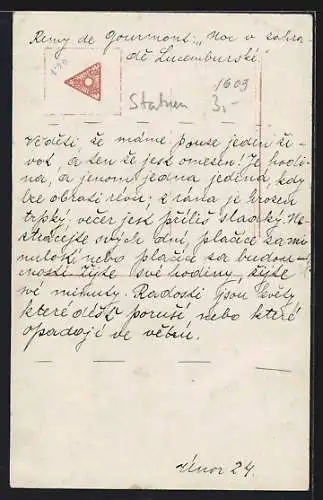 Remy de Gourmont: „Noc v zahra-
dě Lucemburské."
1609
Statuen
3.-
Věděti, že máme pouze jeden ži-
vot, a ten že jest omezen! Je hodi-
na, a jenom jedna jediná, kdy
lze obrati révu; z rána je hrozen
trpký, večer jest příliš sladký. Ne-
ztrácejte svých dní, plačíce za mi-
nulostí nebo plačíce za budouc-
ností. Žijte své hodiny, žijte
své minuty. Radosti jsou květy
které déšť poruší nebo které
opadají ve větru.
Únor 24.